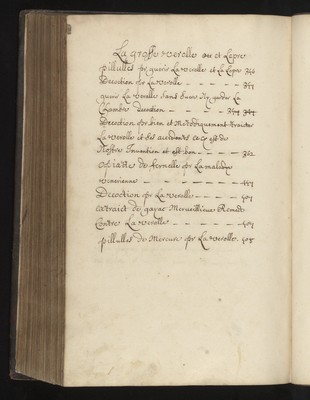 La grosse verolle ou et Lepre
pillulles pr guerir La verolle et La Lepre
Decoction pr La verolle
guerir La verolle sans suer Ny garder La
Chambre decoction
Decoction pr bien et Methodiquement traiter
La verolle et des accidents
Nostre Invention et est bon
Opiatte de fernelle pr La maladie
venerienne
Decoction pr La verolle
extraict de gayac Merveillieux Remede
Contre La verolle
pillulles de Mercure pr La verolle